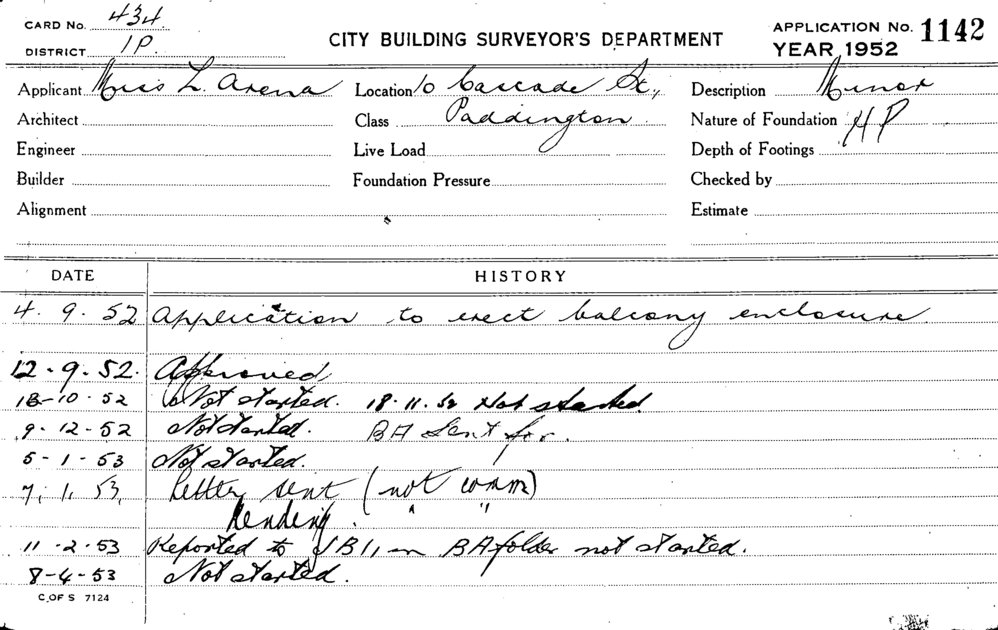 CARD No. 434.
DISTRICT 1P.
CITY BUILDING SURVEYOR'S DEPARTMENT
APPLICATION No. 1142
YEAR 1952
Applicant Miss L. Arena Location 10 Cascade St., Description Minor
Architect Class Paddington Nature of Foundation HP
Engineer Live Load Depth of Footings
Builder Foundation Pressure Checked by
Alignment Estimate
DATE HISTORY
4. 9. 52 Application to erect balcony enclosure
12-9-52. Approved
13-10-52 Not started. 18.11.52 Not started
9-12-52 Not started. BA Sent for.
5-1-53 Not started.
7. 1. 53. Letter sent (not comm)
Pending. " "
11-2-53 Reported to in BA folder not started.
8-4-53 Not started.
C. OF S 7124